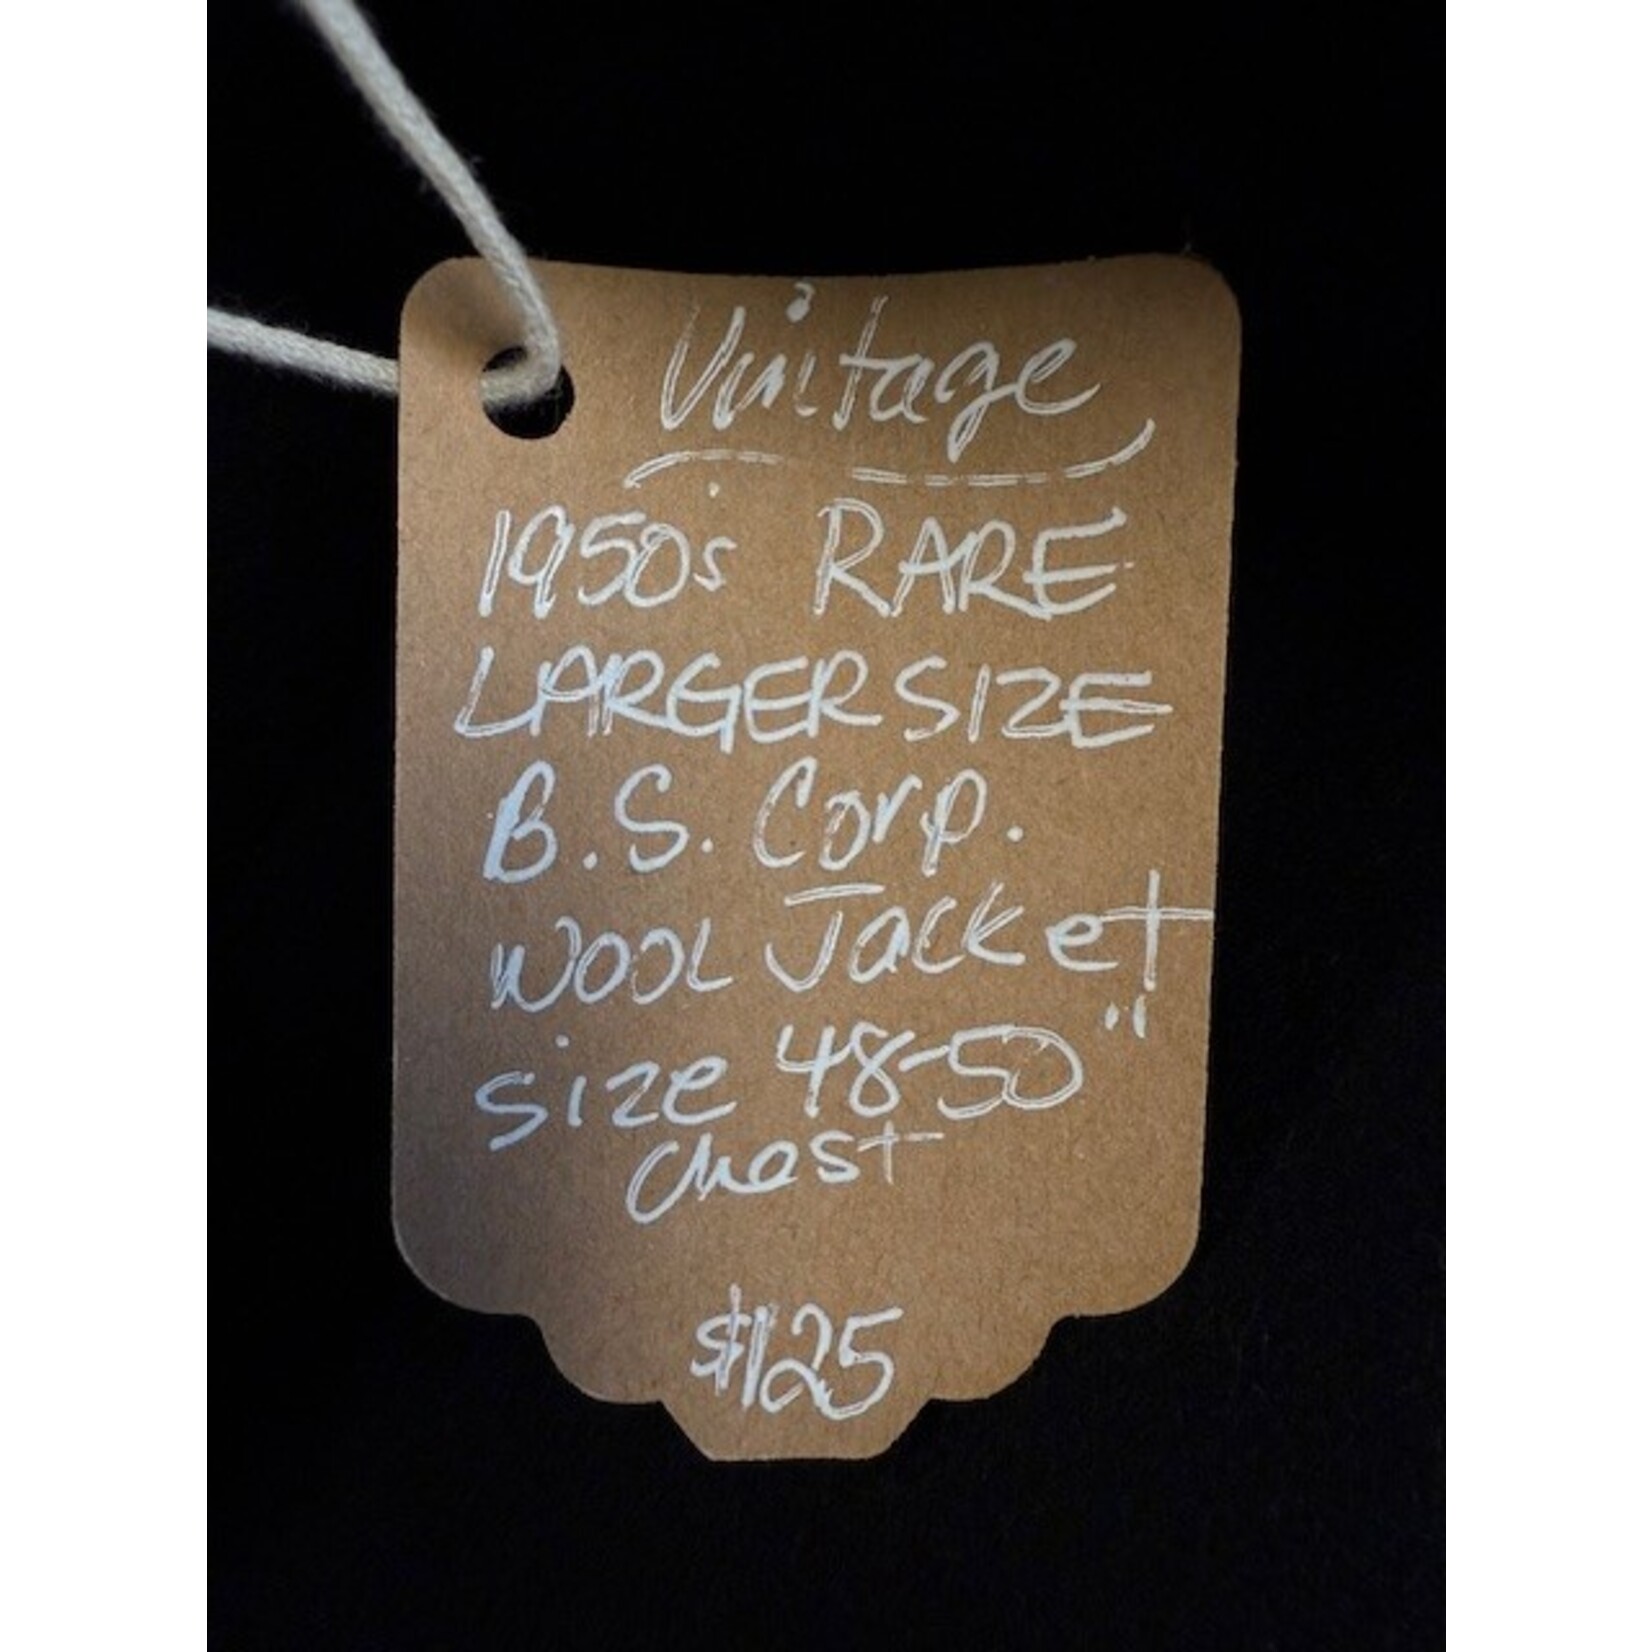 Vintage
1950s RARE
LARGER SIZE
B.S. Corp.
WOOL Jacket
size 48-50"
chest
$125